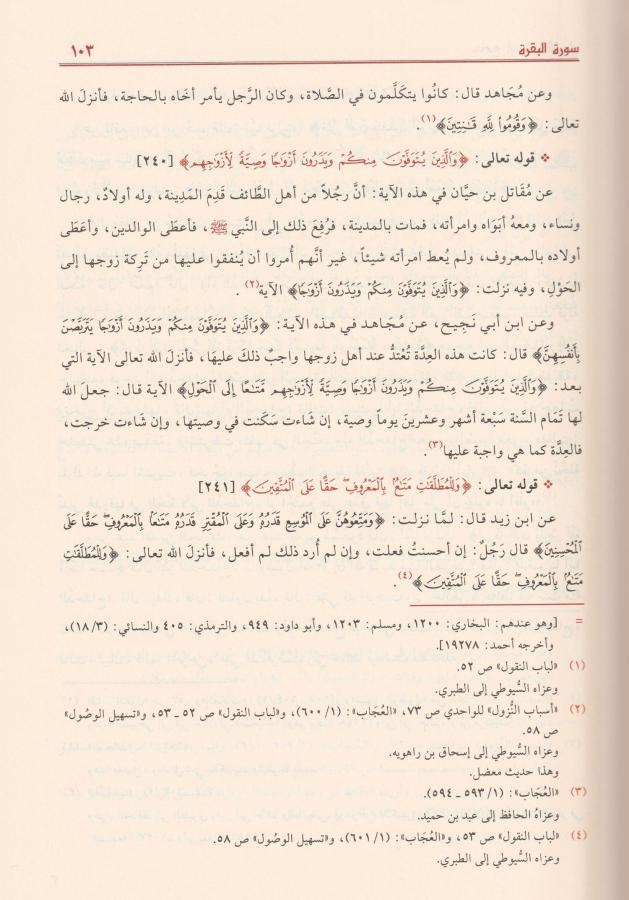 سورة البقرة ١٠٣
وعن مُجَاهد قال: كانُوا يتكلَّمون في الصَّلاة، وكان الرَّجل يأمر أخَاه بالحاجة، فأنزلَ الله
تعالى: ﴿وَقُومُوا۟ لِلَّهِ قَـٰنِتِينَ﴾(١).
❖ قوله تعالى: ﴿وَٱلَّذِينَ يُتَوَفَّوْنَ مِنكُمْ وَيَذَرُونَ أَزْوَٰجًا وَصِيَّةً لِّأَزْوَٰجِهِم﴾ [٢٤٠]
عن مُقَاتل بن حيَّان في هذه الآية: أنَّ رجُلاً من أهل الطَّائف قَدِمَ المَدِينة، وله أولادٌ، رجال
ونساء، ومعهُ أبَوَاه وامرأته، فمات بالمدينة، فرُفِعَ ذلك إلى النَّبي ﷺ، فأعطَى الوالدين، وأعطَى
أولاده بالمعروف، ولم يُعط امرأته شيئاً، غير أنَّهم أُمروا أن يُنفقوا عليها من تَرِكة زوجها إلى
الحَوْلِ، وفيه نزلت: ﴿وَٱلَّذِينَ يُتَوَفَّوْنَ مِنكُمْ وَيَذَرُونَ أَزْوَٰجًا﴾ الآية(٢).
وعن ابن أبي نَجِيح، عن مُجَاهد في هذه الآية: ﴿وَٱلَّذِينَ يُتَوَفَّوْنَ مِنكُمْ وَيَذَرُونَ أَزْوَٰجًا يَتَرَبَّصْنَ
بِأَنفُسِهِنَّ﴾ قال: كانت هذه العِدَّة تُعْتدُّ عند أهل زوجها واجبٌ ذلكَ عليهَا، فأنزلَ الله تعالى الآية التي
بعد: ﴿وَٱلَّذِينَ يُتَوَفَّوْنَ مِنكُمْ وَيَذَرُونَ أَزْوَٰجًا وَصِيَّةً لِّأَزْوَٰجِهِم مَّتَـٰعًا إِلَى ٱلْحَوْلِ﴾ الآية قال: جعلَ الله
لها تَمَام السَّنة سَبْعة أشهر وعشرينَ يوماً وصية، إن شَاءت سَكَنت في وصيتها، وإن شَاءت خرجت،
فالعِدَّة كما هي واجبة عليها(٣).
❖ قوله تعالى: ﴿وَلِلْمُطَلَّقَـٰتِ مَتَـٰعٌۢ بِٱلْمَعْرُوفِ ۖ حَقًّا عَلَى ٱلْمُتَّقِينَ﴾ [٢٤١]
عن ابن زيد قال: لمَّا نزلت: ﴿وَمَتِّعُوهُنَّ عَلَى ٱلْمُوسِعِ قَدَرُهُۥ وَعَلَى ٱلْمُقْتِرِ قَدَرُهُۥ مَتَـٰعًۢا بِٱلْمَعْرُوفِ ۖ حَقًّا عَلَى
ٱلْمُحْسِنِينَ﴾ قال رَجُلٌ: إن أحسنتُ فعلت، وإن لم أُرد ذلك لم أفعل، فأنزلَ الله تعالى: ﴿وَلِلْمُطَلَّقَـٰتِ
مَتَـٰعٌۢ بِٱلْمَعْرُوفِ ۖ حَقًّا عَلَى ٱلْمُتَّقِينَ﴾(٤).
= [وهو عندهم: البخاري: ١٢٠٠، ومسلم: ١٢٠٣، وأبو داود: ٩٤٩، والترمذي: ٤٠٥ والنسائي: (١٨/٣)،
وأخرجه أحمد: ١٩٢٧٨].
(١) «لباب النقول» ص ٥٢.
وعزاه السُّيوطي إلى الطبري.
(٢) «أسباب النُّزول» للواحدي ص ٧٣، «العُجَاب»: (٦٠٠/١)، و«لباب النقول» ص ٥٢ ـ ٥٣، و«تسهيل الوصُول»
ص ٥٨.
وعزاه السُّيوطي إلى إسحاق بن راهويه.
وهذا حديث معضل.
(٣) «العُجَاب»: (٥٩٣/١ ـ ٥٩٤).
وعزاهُ الحافظ إلى عبد بن حميد.
(٤) «لباب النقول» ص ٥٣، و«العُجَاب»: (٦٠١/١)، و«تسهيل الوصُول» ص ٥٨.
وعزاه السُّيوطي إلى الطبري.